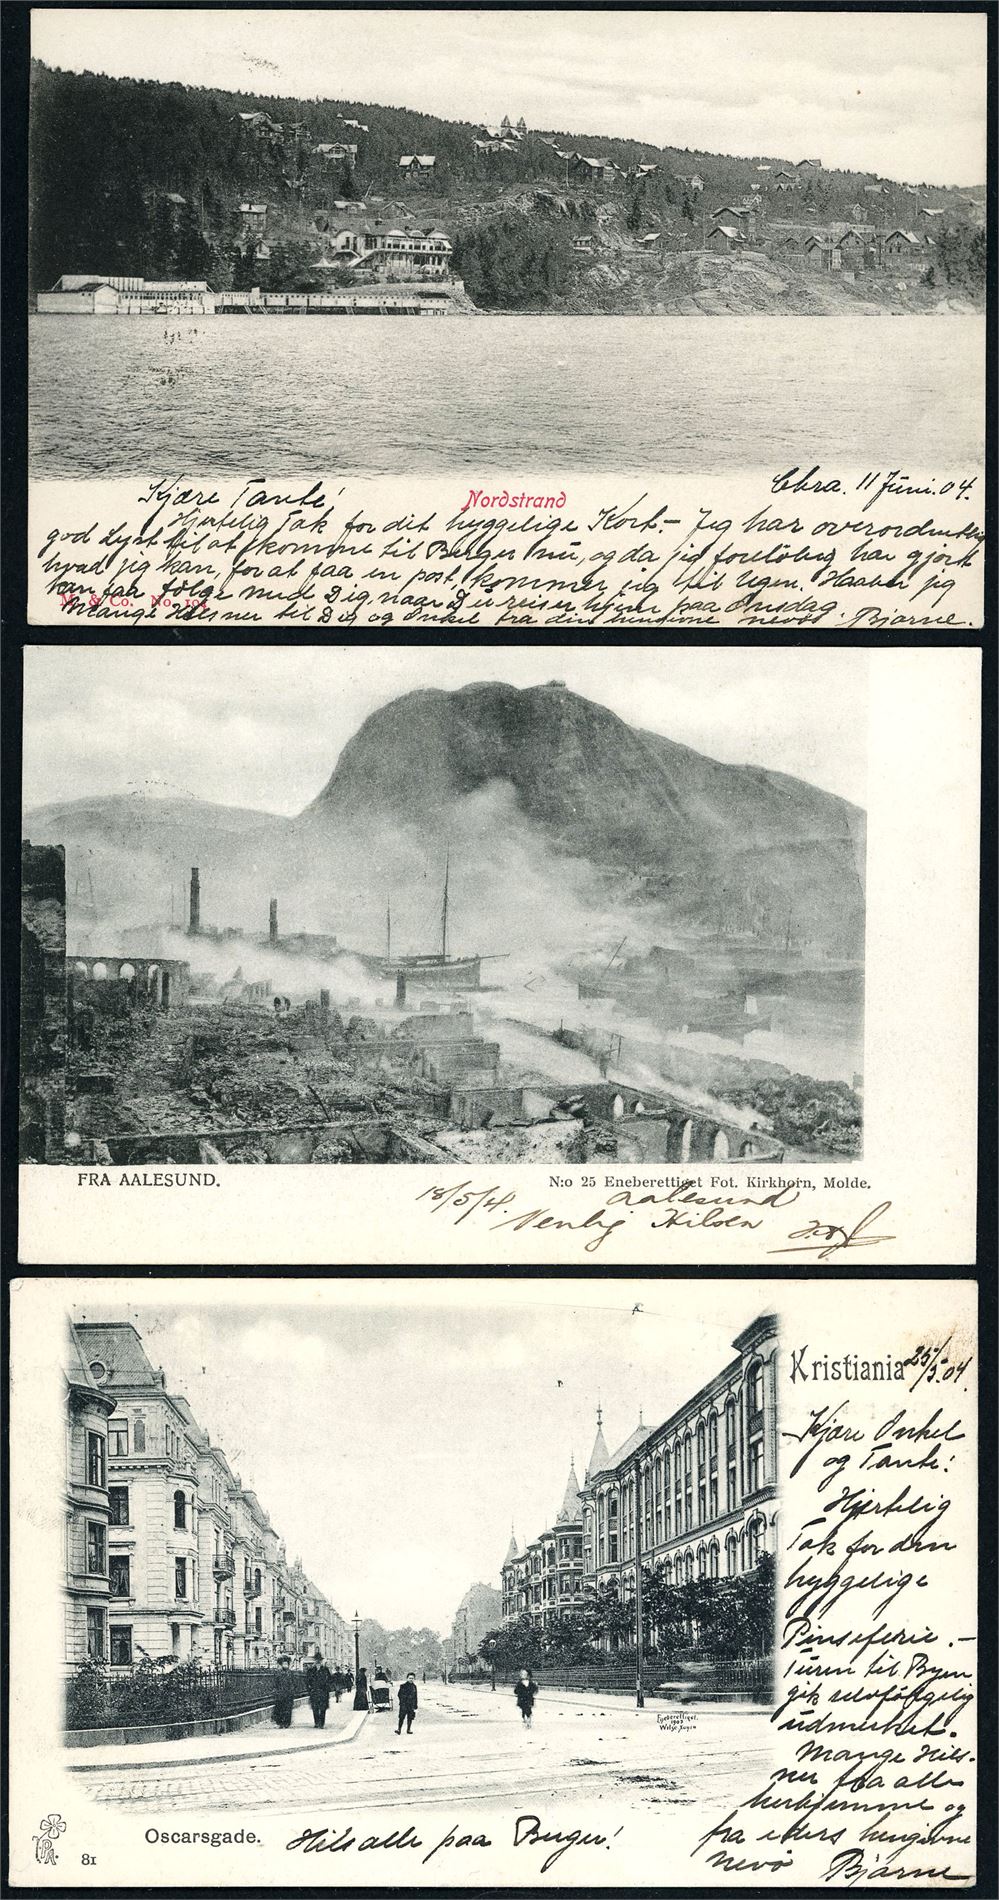 Nordstrand
Chra. 11 Juni. 04.
Kjære Tante!
Hjertelig Tak for dit hyggelige Kort.- Jeg har overordentlig
god Lyst til at komme til Berger nu, og da jeg foreløbig har gjort
hvad jeg kan, for at faa en post, kommer jeg til Ugen. Haaber jeg
kan faa følge med Dig, naar Du reiser hjem paa Onsdag.
& Co. No. 104
Mange Hilsner til Dig og Onkel fra din hengivne nevø Bjarne.
FRA AALESUND.
N:o 25 Eneberettiget Fot. Kirkhorn, Molde.
18/5/4. Aalesund
Venlig Hilsen
Kristiania 25/5.04.
Kjære Onkel
og Tante!
Hjertelig
Tak for den
hyggelige
Pinseferie.-
Turen til Byen
gik selvfølgelig
udmerket.
Mange Hils-
ner fra alle
herhjemme og
fra eders hengivne
nevø Bjarne
Eneberettiget
1903
Oscarsgade.
Hils alle paa Berger!
81